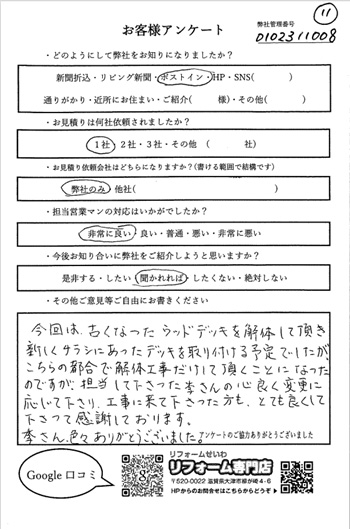 11
お客様アンケート
弊社管理番号
D102311008
・どのようにして弊社をお知りになりましたか？
新聞折込・リビング新聞・ポストイン・HP・SNS(　　　)
通りがかり・近所にお住まい・ご紹介(　　　様)・その他(　　　)
・お見積りは何社依頼されましたか？
1社・2社・3社・その他 (　　　社)
・お見積り依頼会社はどちらになりますか？(書ける範囲で結構です)
弊社のみ・他社(　　　)
・担当営業マンの対応はいかがでしたか？
非常に良い・良い・普通・悪い・非常に悪い
・今後お知り合いに弊社をご紹介しようと思いますか？
是非する・したい・聞かれれば・したくない・絶対しない
・その他ご意見等ご自由にお書きください
今回は、古くなったウッドデッキを解体して頂き
新しくチラシにあったデッキを取り付ける予定でしたが、
こちらの都合で解体工事だけして頂くことになった
のですが、担当して下さった李さんの心良く変更に
応じて下さり、工事に来て下さった方も、とても良くして
下さって感謝しております。
李さん、色々ありがとうございました。
アンケートのご協力ありがとうございました
Google 口コミ
リフォームせいわ
リフォーム専門店
〒520-0022 滋賀県大津市柳が崎4-6
HPからのお問合せはこちらからどうぞ